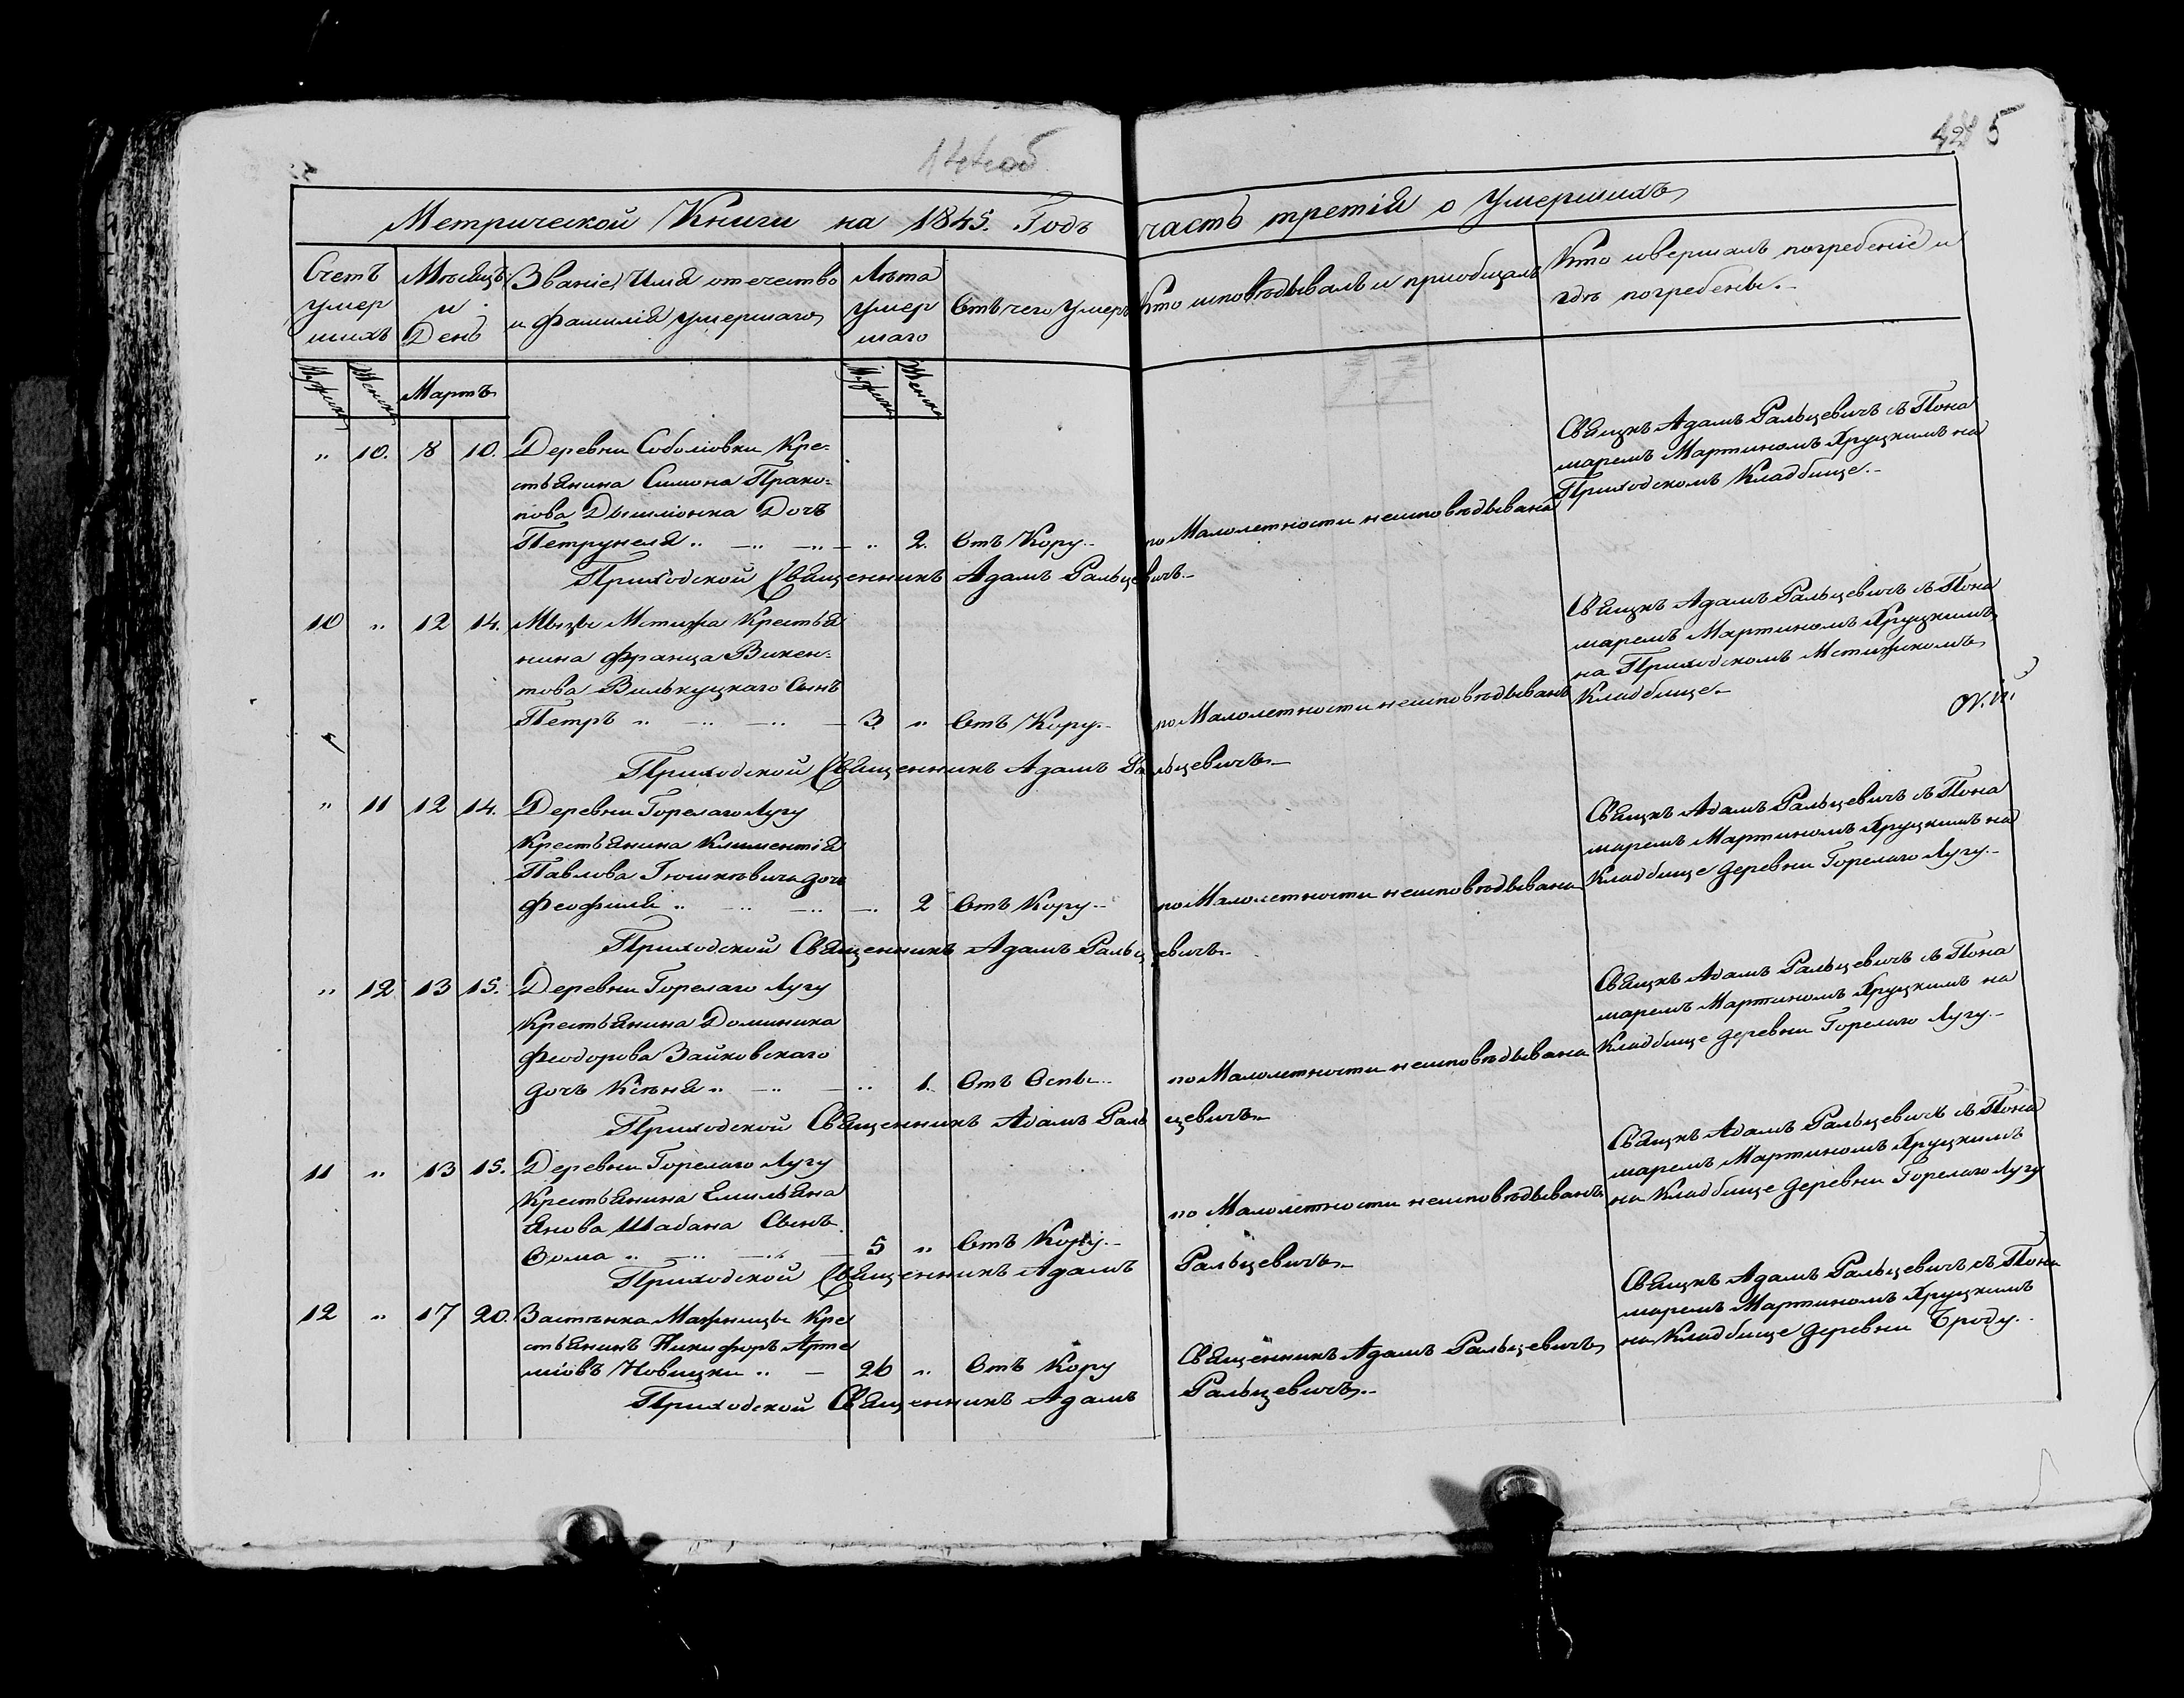 144об
425
Метрической Книги на 1845. Годъ часть третія о Умершихъ
Счетъ умер шихъ
Мѣсяцъ и День
Званіе, Имя отечество и фамилія умершаго
Лѣта умер шаго
Отъ чего Умеръ
Кто исповѣдывалъ и приобщалъ
Кто совершалъ погребеніе и гдѣ погребены.
Мартъ
" 10. 8 10. Деревни Соболіовки Кре-
стьянина Симона Прако-
пова Дышліонка Дочь
Петрунеля " 2. Отъ Кору. по Малолетности неисповѣдывана
Свящкъ Адамъ Ральцевичъ съ Пона
маремъ Мартиномъ Хруцкимъ на
Приходскомъ Кладбище.
Приходской Священникъ Адамъ Ральцевичъ
10 " 12 14. Мызы Мстижа Крестья
нина Франца Викен-
това Вилькуцкаго Сынъ
Петръ 3 " Отъ Кору. по Малолетности неисповѣдыванъ
Свящкъ Адамъ Ральцевичъ съ Пона
маремъ Мартиномъ Хруцкимъ
на Приходскомъ Мстижскомъ
Кладбище
Приходской Священникъ Адамъ Ральцевичъ
" 11 12 14. Деревни Горелаго Лугу
Крестьянина Климентія
Павлова Гюшкевича дочь
Феофиля " 2 Отъ Кору по Малолетности неисповѣдывана
Свящкъ Адамъ Ральцевичъ съ Пона
маремъ Мартиномъ Хруцкимъ на
Кладбище деревни Горелаго Лугу
Приходской Священникъ Адамъ Ральцевичъ
" 12 13 15. Деревни Горелаго Лугу
Крестьянина Доминика
Феодорова Зайковскаго
дочь Ксѣня " 1. Отъ Оспы по Малолетности неисповѣдывана
Свящкъ Адамъ Ральцевичъ съ Пона
маремъ Мартиномъ Хруцкимъ на
Кладбище деревни Горелаго Лугу
Приходской Священникъ Адамъ Ральцевичъ
11 " 13 15. Деревни Горелаго Лугу
Крестьянина Емильяна
Янова Шабана Сынъ
Фома 5 " Отъ Кору. по Малолетности неисповѣдыванъ
Свящкъ Адамъ Ральцевичъ съ Пона
маремъ Мартиномъ Хруцкимъ
на Кладбище деревни Горелаго Лугу
Приходской Священникъ Адамъ Ральцевичъ
12 " 17 20. Застѣнка Мажницы Кре
стьянинъ Никифоръ Арте
міовъ Новицки 26 " Отъ Кору Священникъ Адамъ Ральцевичъ
Свящкъ Адамъ Ральцевичъ съ Пона
маремъ Мартиномъ Хруцкимъ
на Кладбище деревни Броду.
Приходской Священникъ Адамъ Ральцевичъ